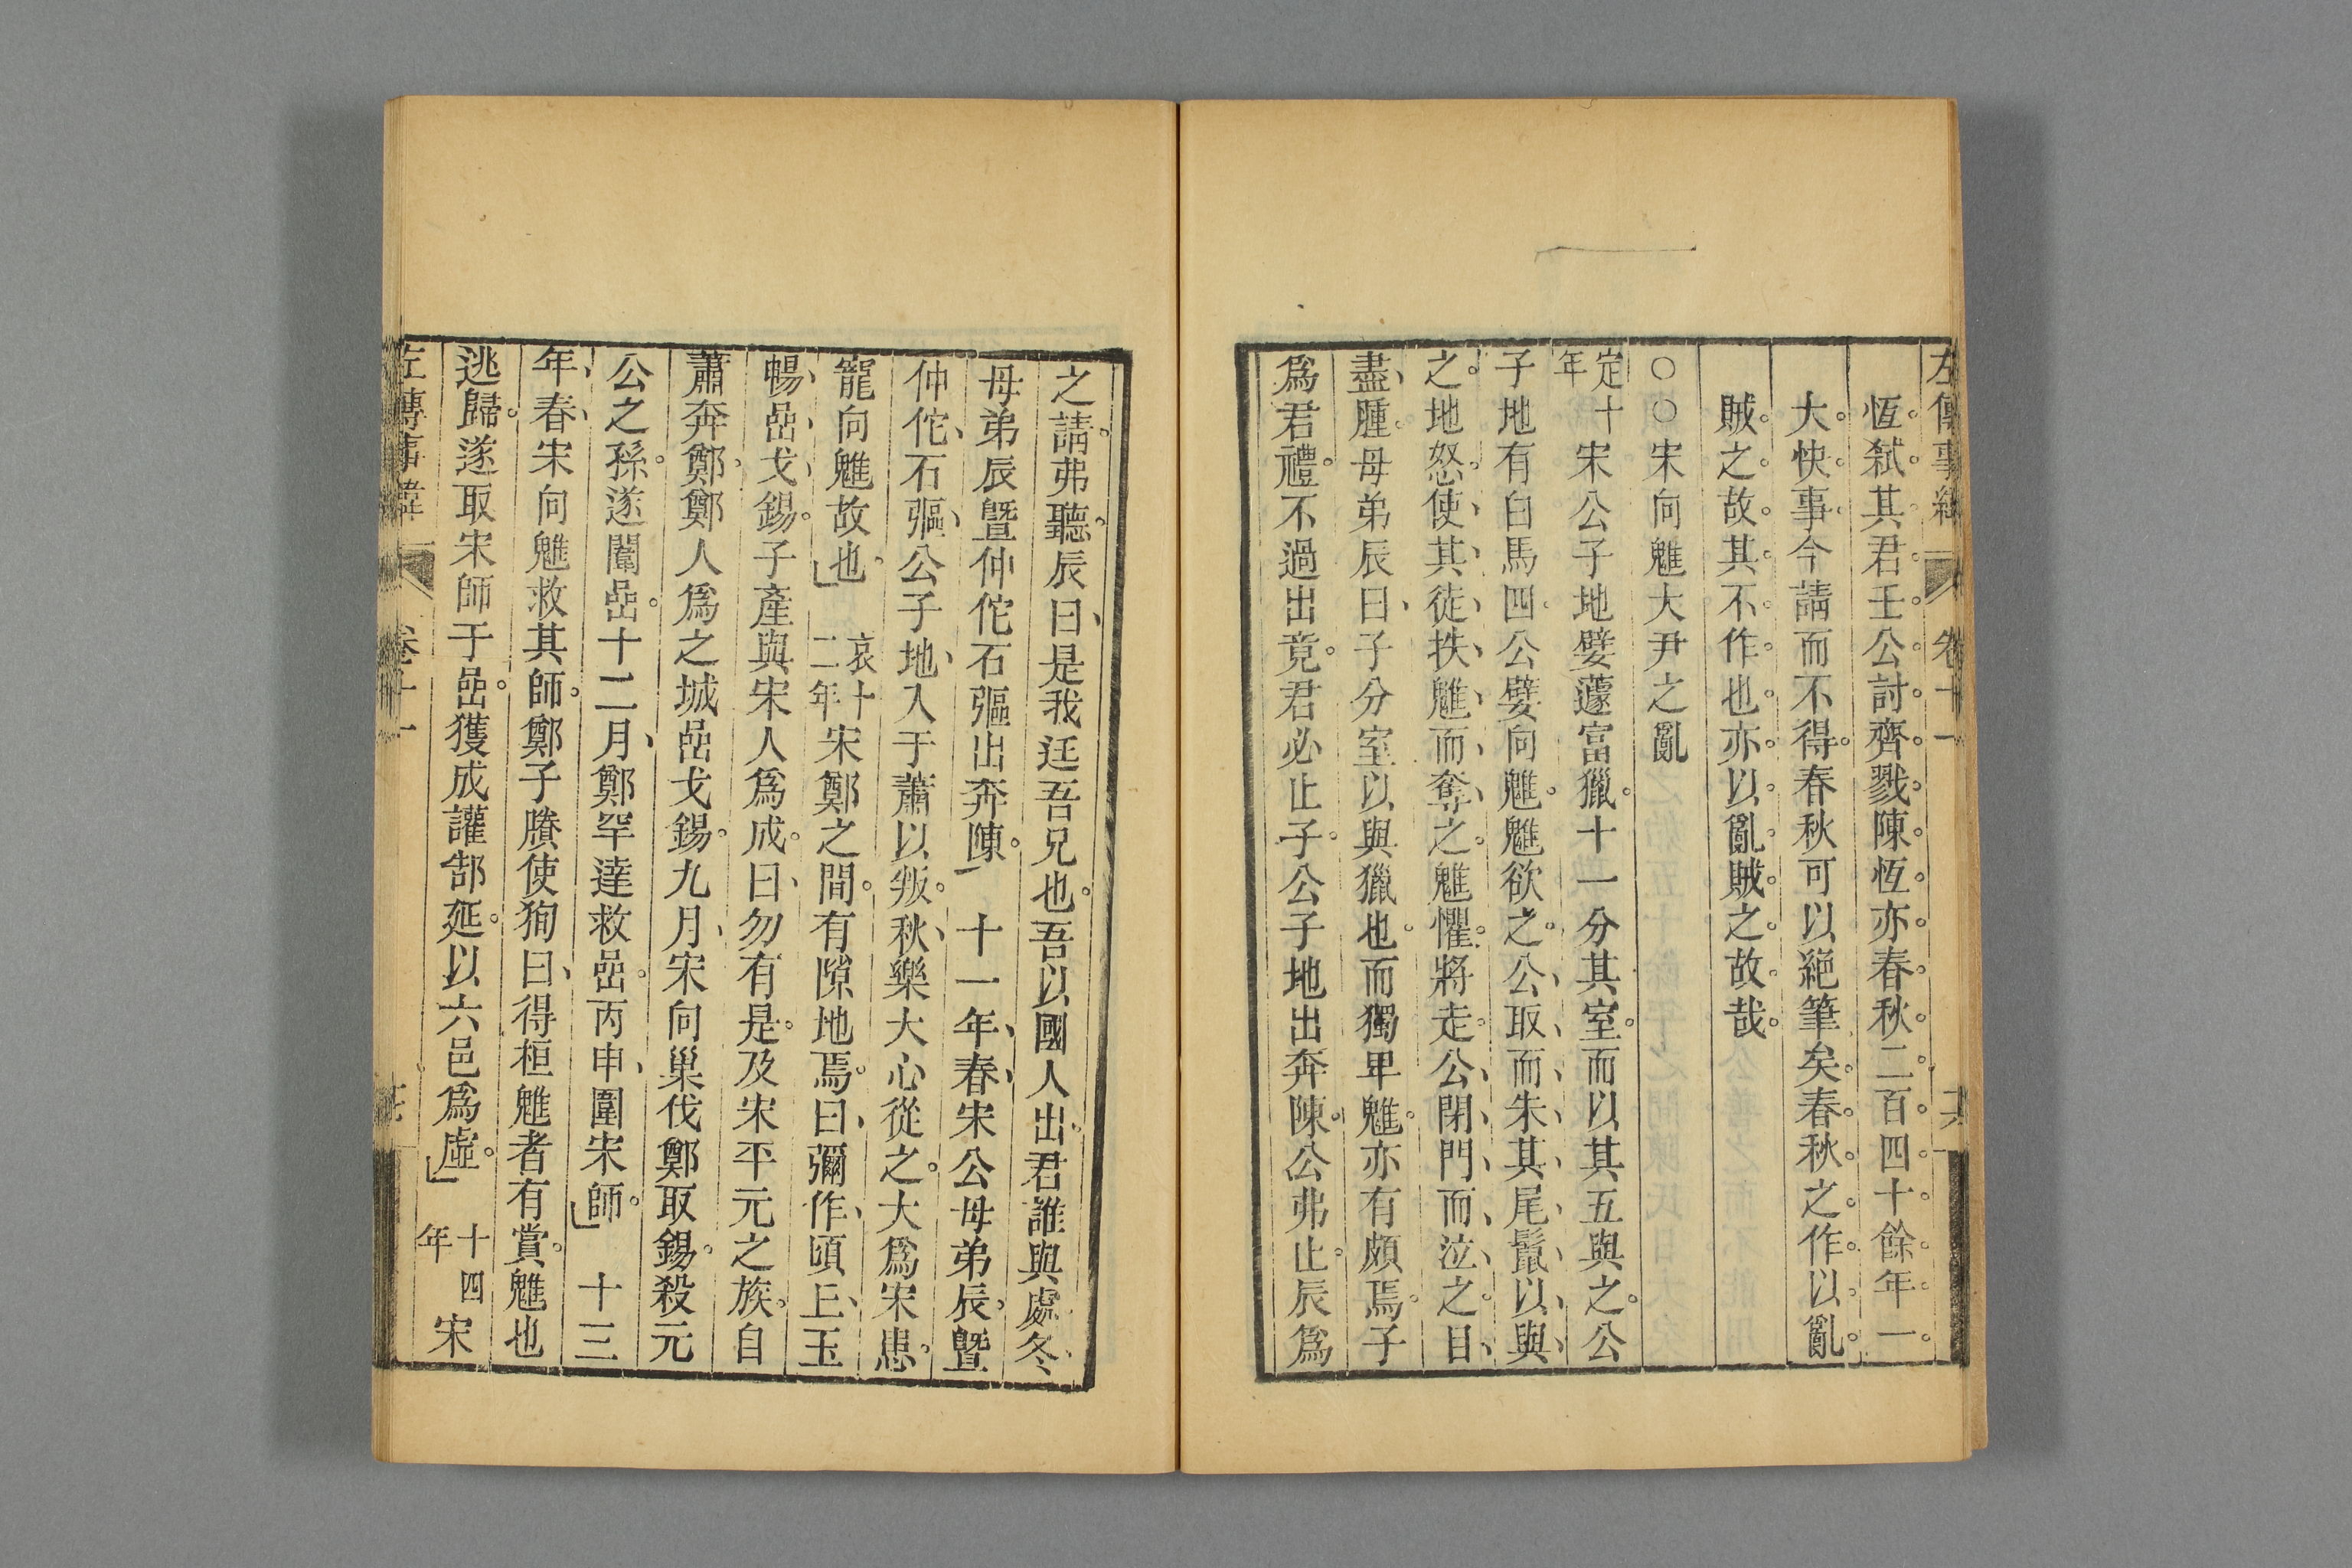 左傳事緯 卷十一
恆弑其君壬公討齊戮陳恆亦春秋二百四十餘年一
大快事今請而不得春秋可以絕筆矣春秋之作以亂
賊之故其不作也亦以亂賊之故哉
○○宋向魋大尹之亂
定十年宋公子地嬖蘧富獵十一分其室而以其五與之公
子地有白馬四公嬖向魋魋欲之公取而朱其尾鬣以與
之地怒使其徒抶魋而奪之魋懼將走公閉門而泣之目
盡腫母弟辰曰子分室以與獵也而獨卑魋亦有頗焉子
爲君禮不過出竟君必止子公子地出奔陳公弗止辰爲
之請弗聽辰曰是我迋吾兄也吾以國人出君誰與處冬
母弟辰暨仲佗石彄出奔陳 十一年春宋公母弟辰暨
仲佗石彄公子地入于蕭以叛秋樂大心從之大爲宋患
寵向魋故也 哀十二年宋鄭之間有隙地焉曰彌作頃上玉
暢嵒戈錫子產與宋人爲成曰勿有是及宋平元之族自
蕭奔鄭鄭人爲之城嵒戈錫九月宋向巢伐鄭取錫殺元
公之孫遂圍嵒十二月鄭罕達救嵒丙申圍宋師 十三
年春宋向魋救其師鄭子賸使狥曰得桓魋者有賞魋也
逃歸遂取宋師于嵒獲成讙郜延以六邑爲虛 十四年宋
左傳事緯 卷十一